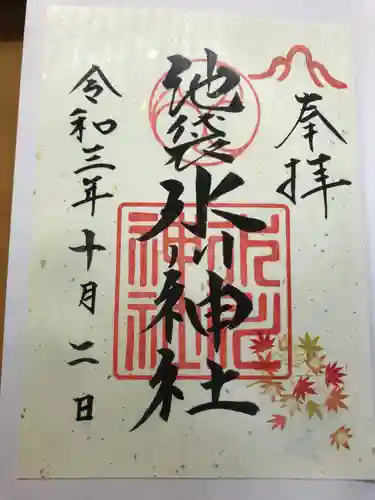 奉拝
池袋氷川神社
令和三年十月二日
氷川
神社